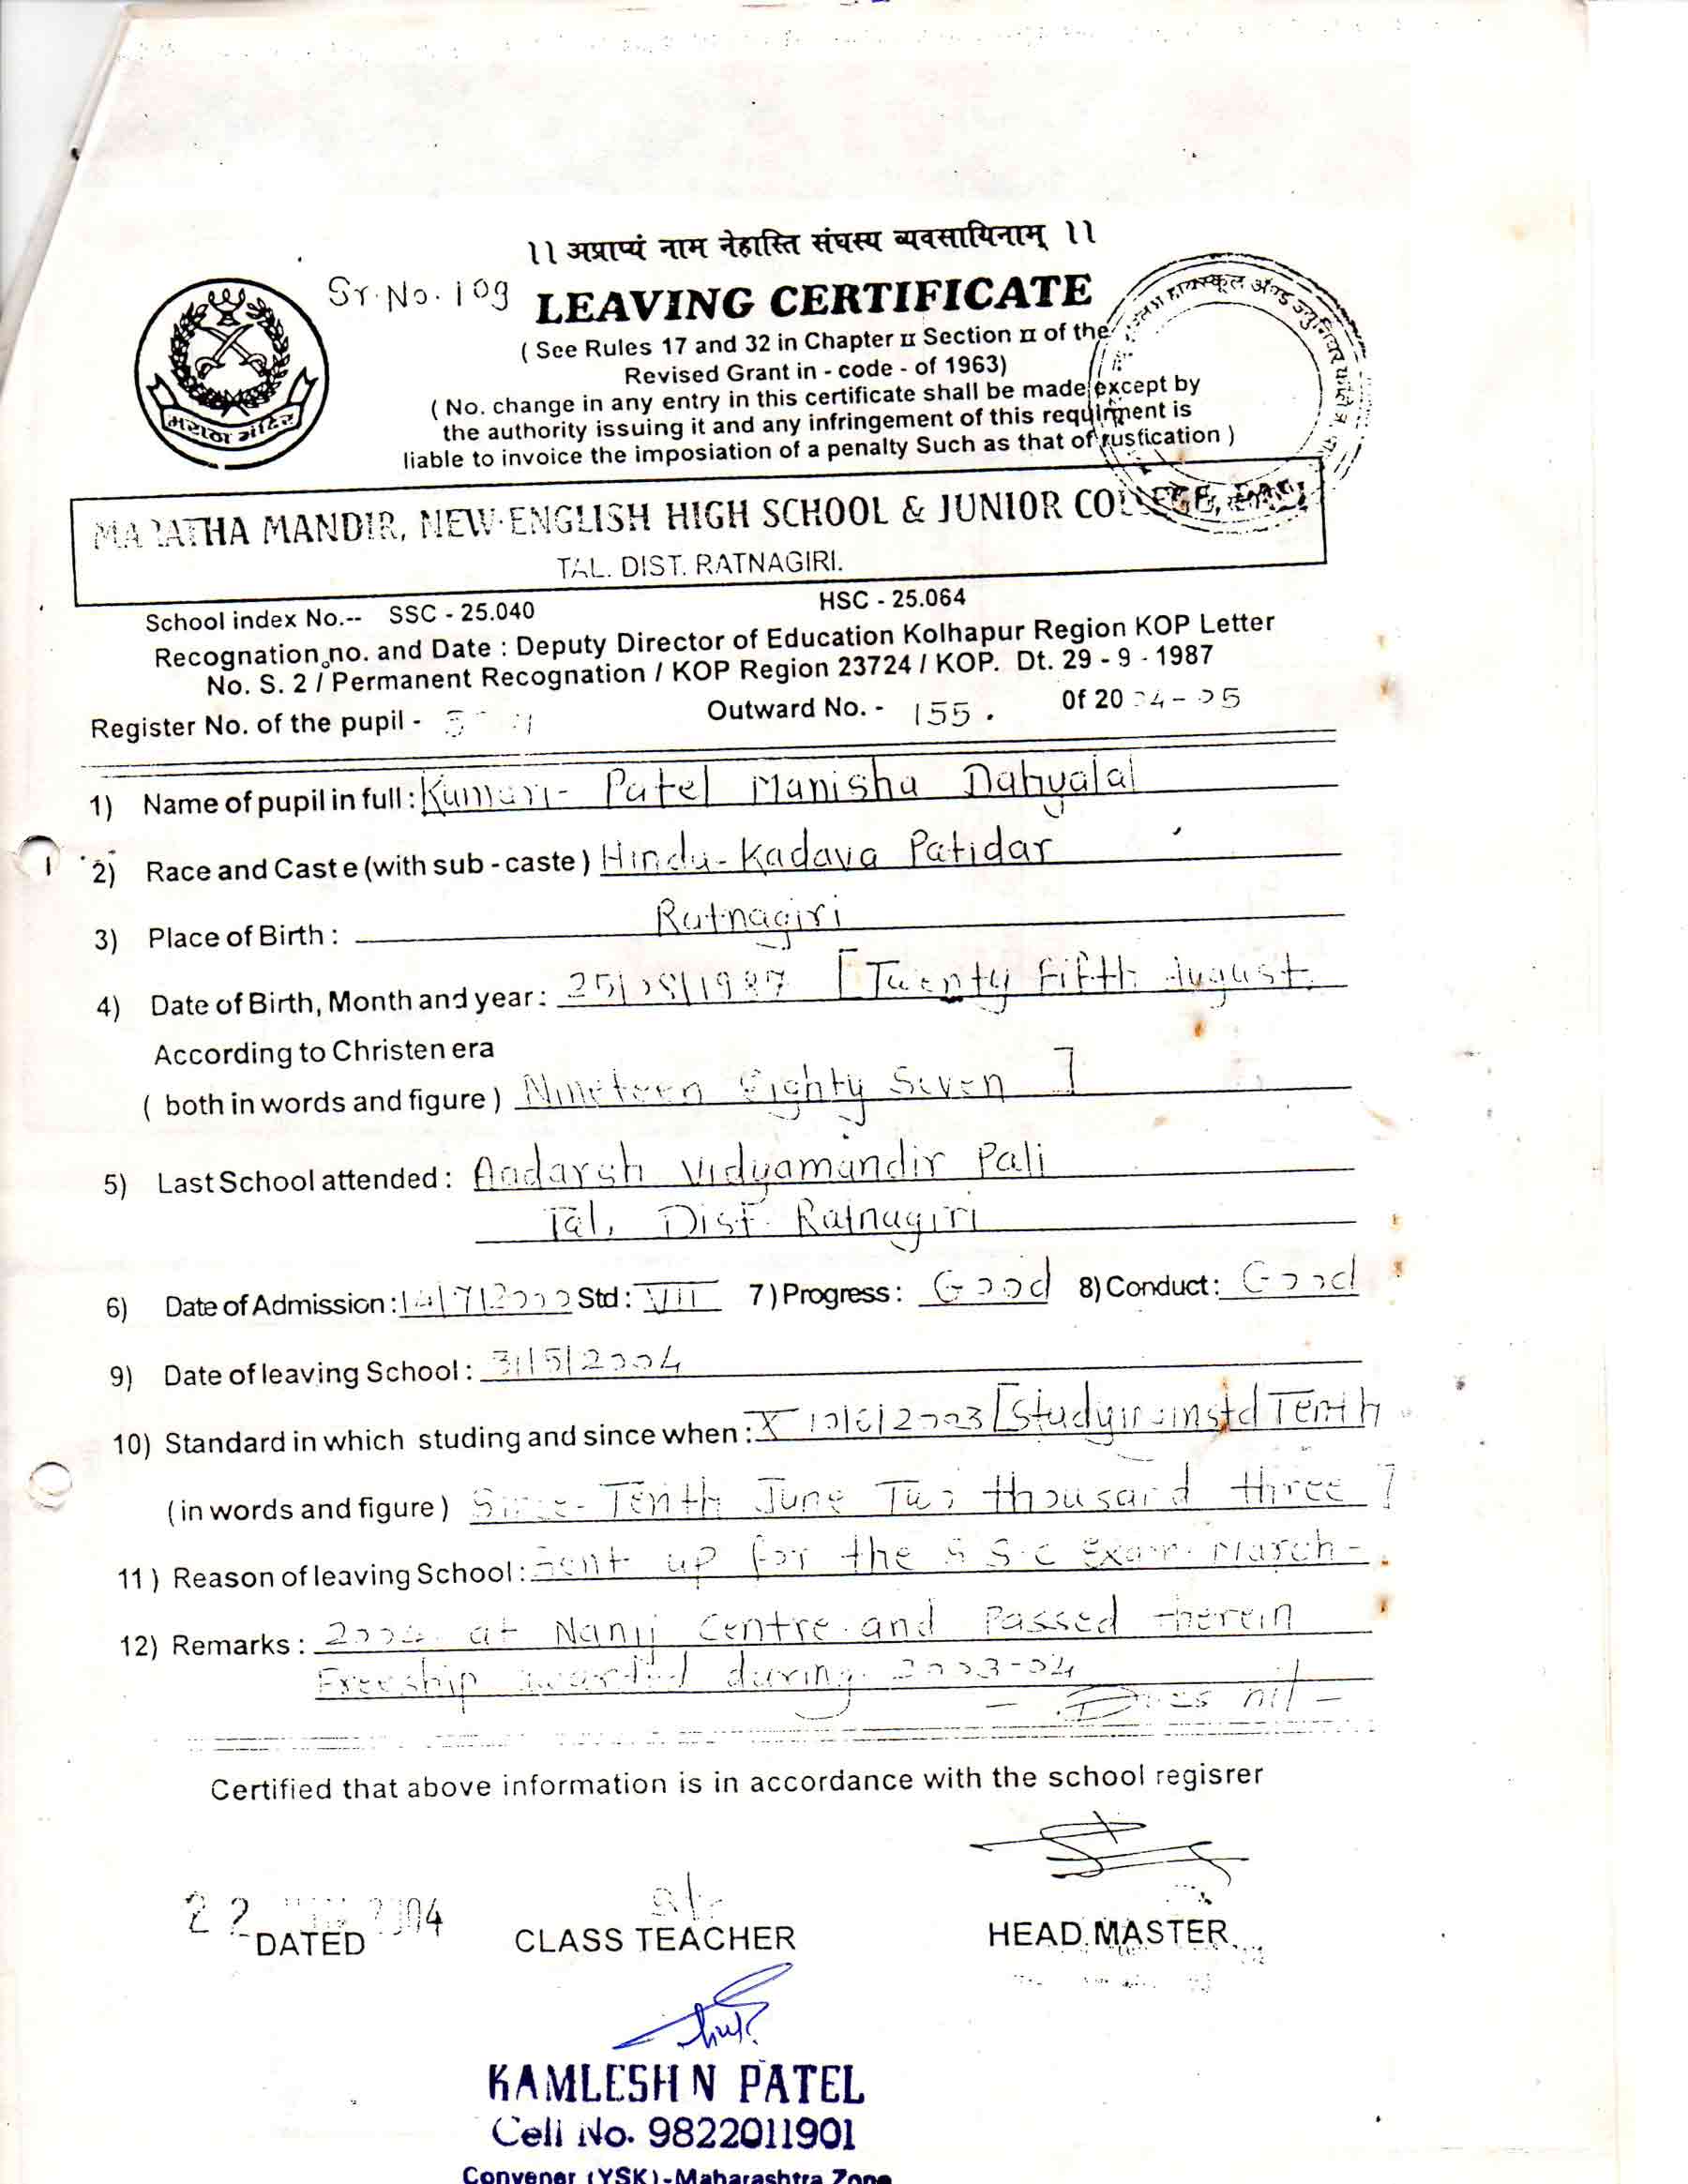 ।। अप्राप्यं नाम नेहास्ति संघस्य व्यवसायिनाम् ।।
Sr. No. 109
LEAVING CERTIFICATE
( See Rules 17 and 32 in Chapter II Section II of the
Revised Grant in - code - of 1963)
( No. change in any entry in this certificate shall be made except by
the authority issuing it and any infringement of this requirment is
liable to invoice the imposiation of a penalty Such as that of rustication )
मराठा मंदिर
हायस्कूल ॲण्ड ज्युनियर
MARATHA MANDIR, NEW ENGLISH HIGH SCHOOL & JUNIOR COLLEGE, PALI
TAL. DIST. RATNAGIRI.
School index No.-- SSC - 25.040 HSC - 25.064
Recognation no. and Date : Deputy Director of Education Kolhapur Region KOP Letter
No. S. 2 / Permanent Recognation / KOP Region 23724 / KOP. Dt. 29 - 9 - 1987
Register No. of the pupil - Outward No. - 155. Of 2004-05
1) Name of pupil in full : Kumari- Patel Manisha Dahyalal
2) Race and Cast e (with sub - caste ) Hindu- Kadava Patidar
3) Place of Birth : Ratnagiri
4) Date of Birth, Month and year : 25/08/1987 [Twenty Fifth August
According to Christen era
( both in words and figure ) Nineteen Eighty Seven ]
5) Last School attended : Aadarsh Vidyamandir Pali
Tal, Dist Ratnagiri
6) Date of Admission : /7/2000 Std : VIII 7 ) Progress : Good 8) Conduct : Good
9) Date of leaving School : 31/5/2004
10) Standard in which studing and since when : X 10/6/2003 [Studying in std Tenth
( in words and figure ) Since- Tenth June Two thousand three ]
11 ) Reason of leaving School : Sent up for the S S.C Exam. March-
12) Remarks : 2004 at Nanij Centre and Passed therein
Freeship awarded during 2003-04
- Dues nil -
Certified that above information is in accordance with the school regisrer
22 2004
DATED CLASS TEACHER HEAD MASTER
KAMLESH N PATEL
Cell No. 9822011901
Convener (YSK)-Maharashtra Zone